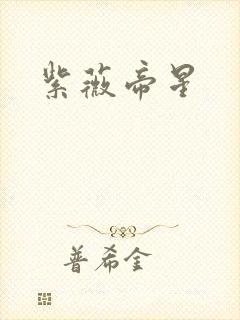 紫薇帝星
普希金